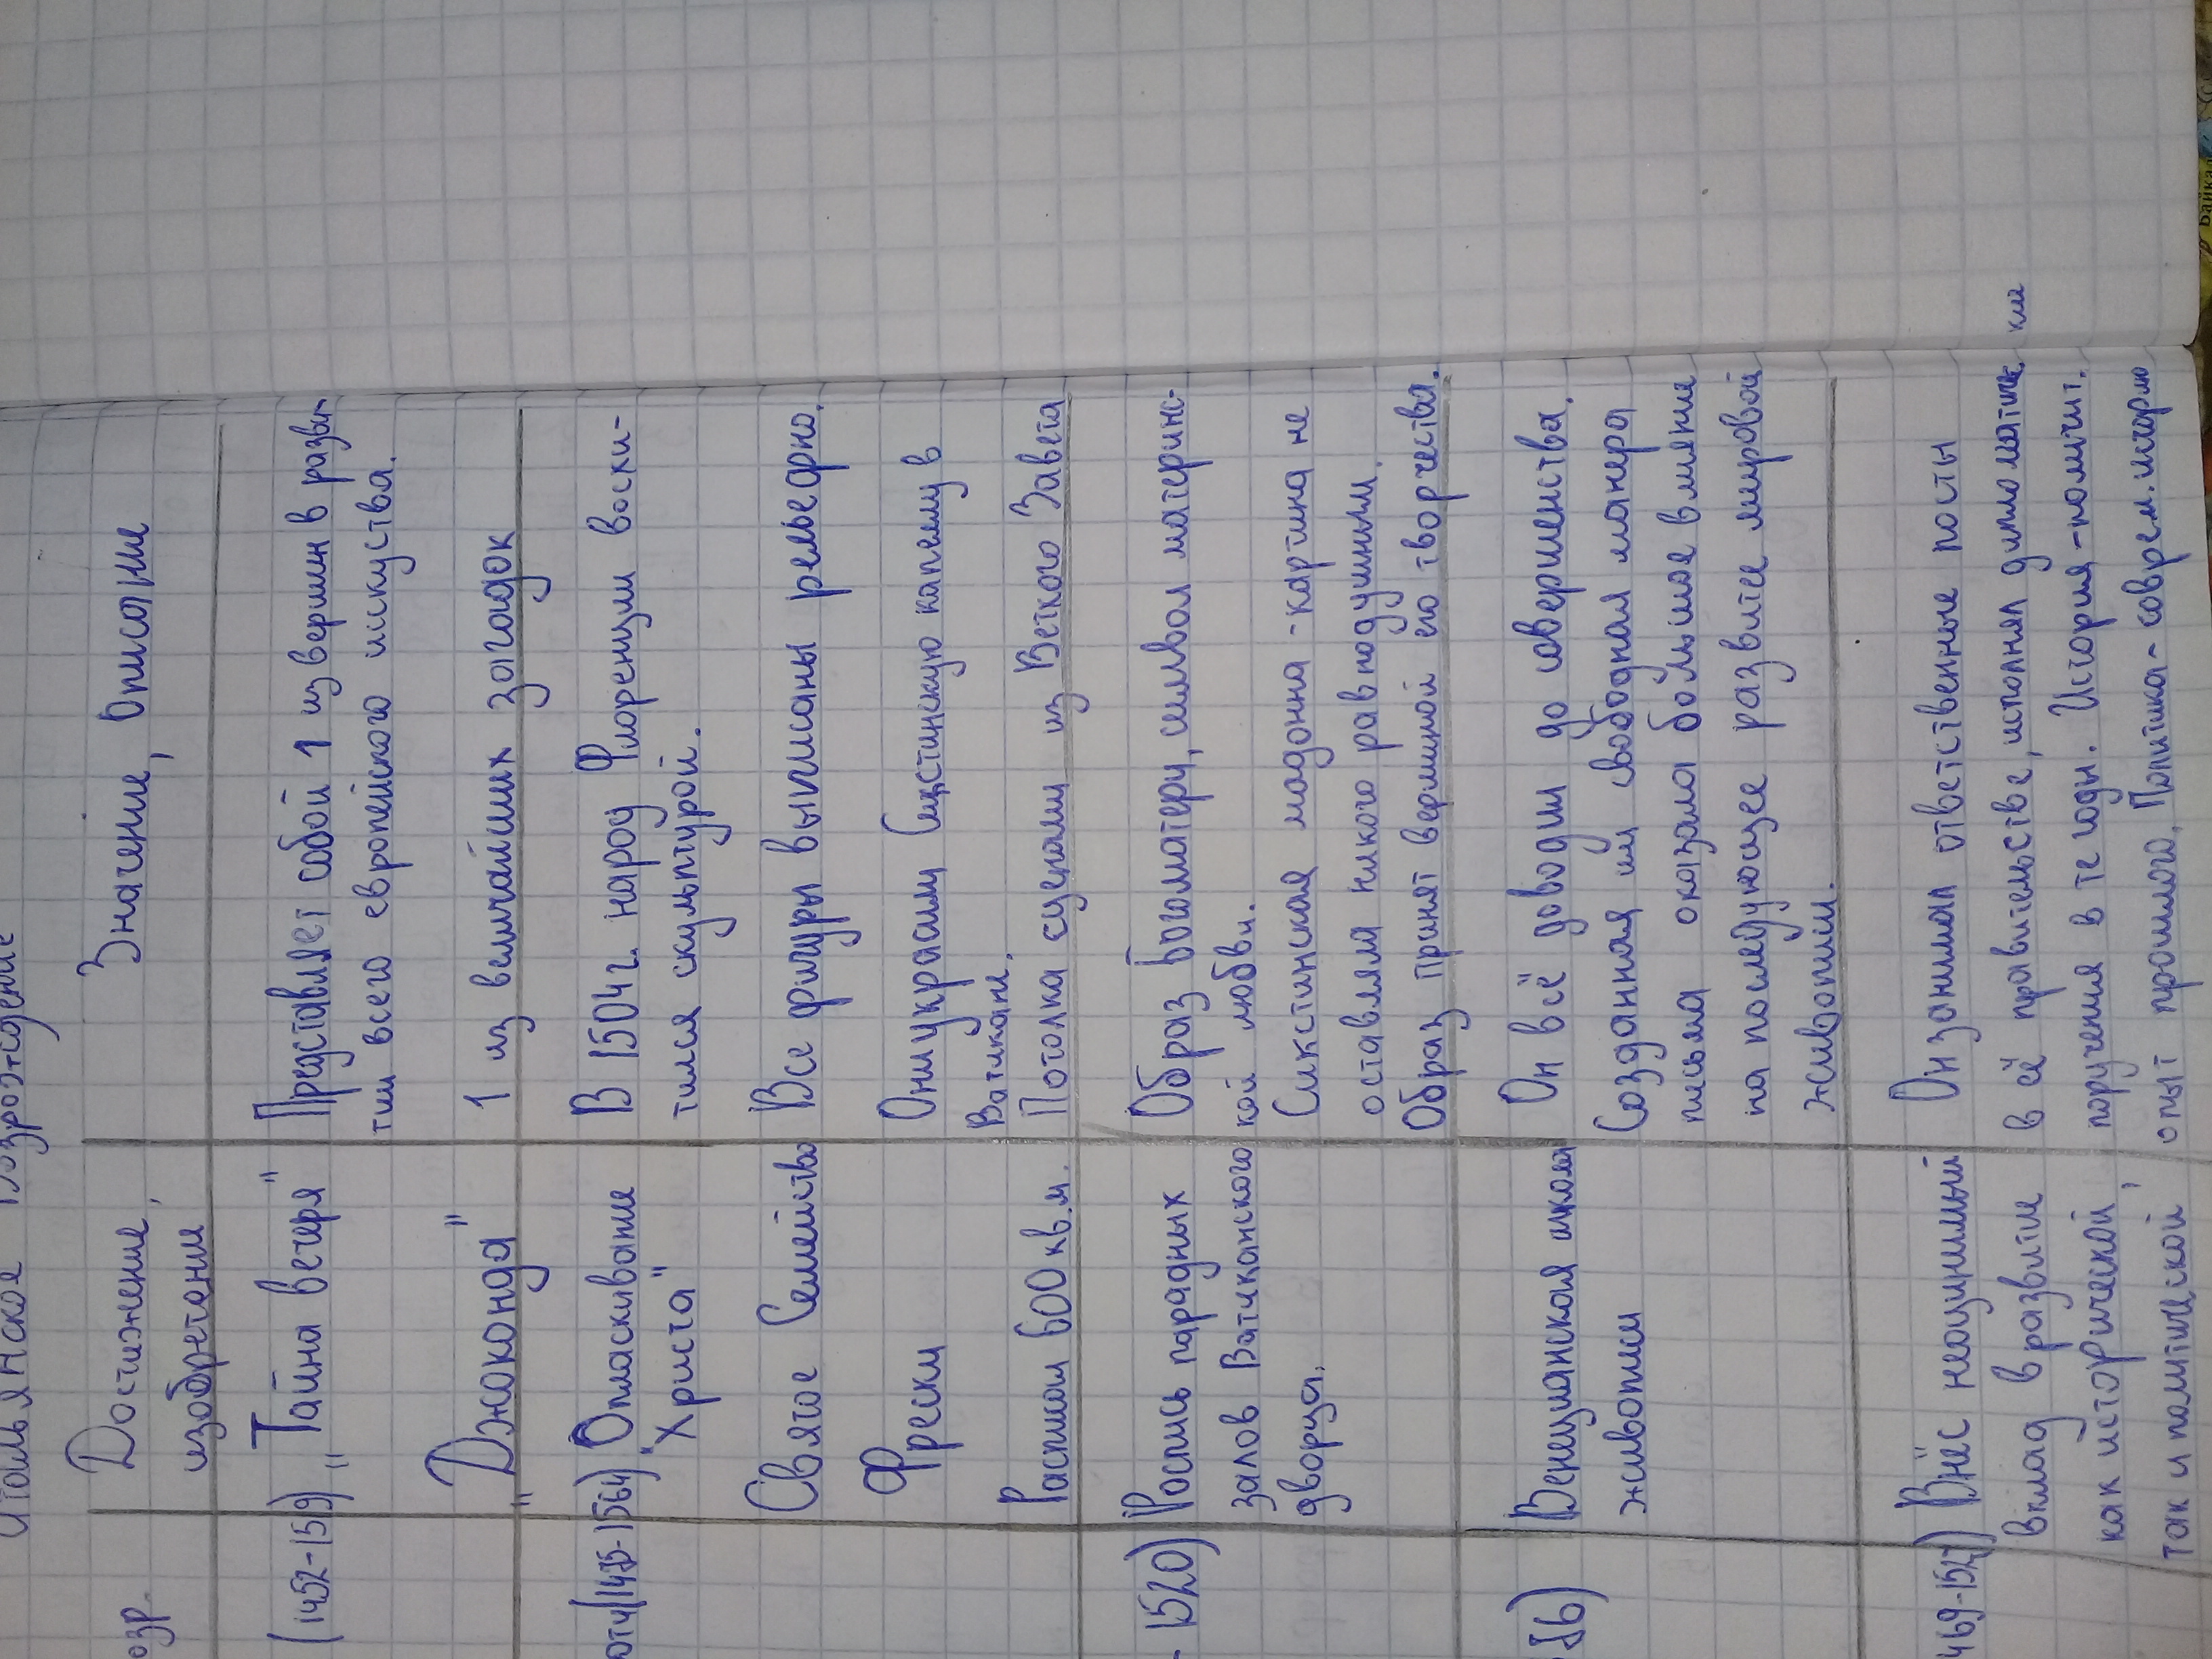 Итальянское Возрождение
озр. Достижение, Значение, описание
изобретении
(1452-1519) „Тайна вечеря" Представляет собой 1 из вершин в разви-
тии всего европейского искуства.
„Джоконда" 1 из величайших загадок
(1475-1564) Оплакивание В 1504 г. народ Флоренции восхи-
"Христа" тился скульптурой.
Святое Семейство Все фигуры выписаны рельефно.
Фрески Они украшали Сикстинскую капеллу в
Ватикане.
Расписал 600 кв.м. Потолка сценами из Ветхого Завета
- 1520) Роспись парадных Образ Богоматери, символ материнс-
залов Ватиканского кой любви.
дворца. Сикстинская мадонна - картина не
оставляла никого равнодушным.
Образ принят вершиной его творчества.
Венецианская школа Он всё доводил до совершенства.
живописи Созданная им свободная манера
письма оказала большое влияние
на последующее развитие мировой
живописи.
469-1527) Внёс неоценимый Он занимал ответственные посты
вклад в развитие в её правительстве, исполнял дипломатичес кие
как исторической, поручения в те годы. История - полит.
так и политической опыт прошлого, Политика - соврем. история
Байкал